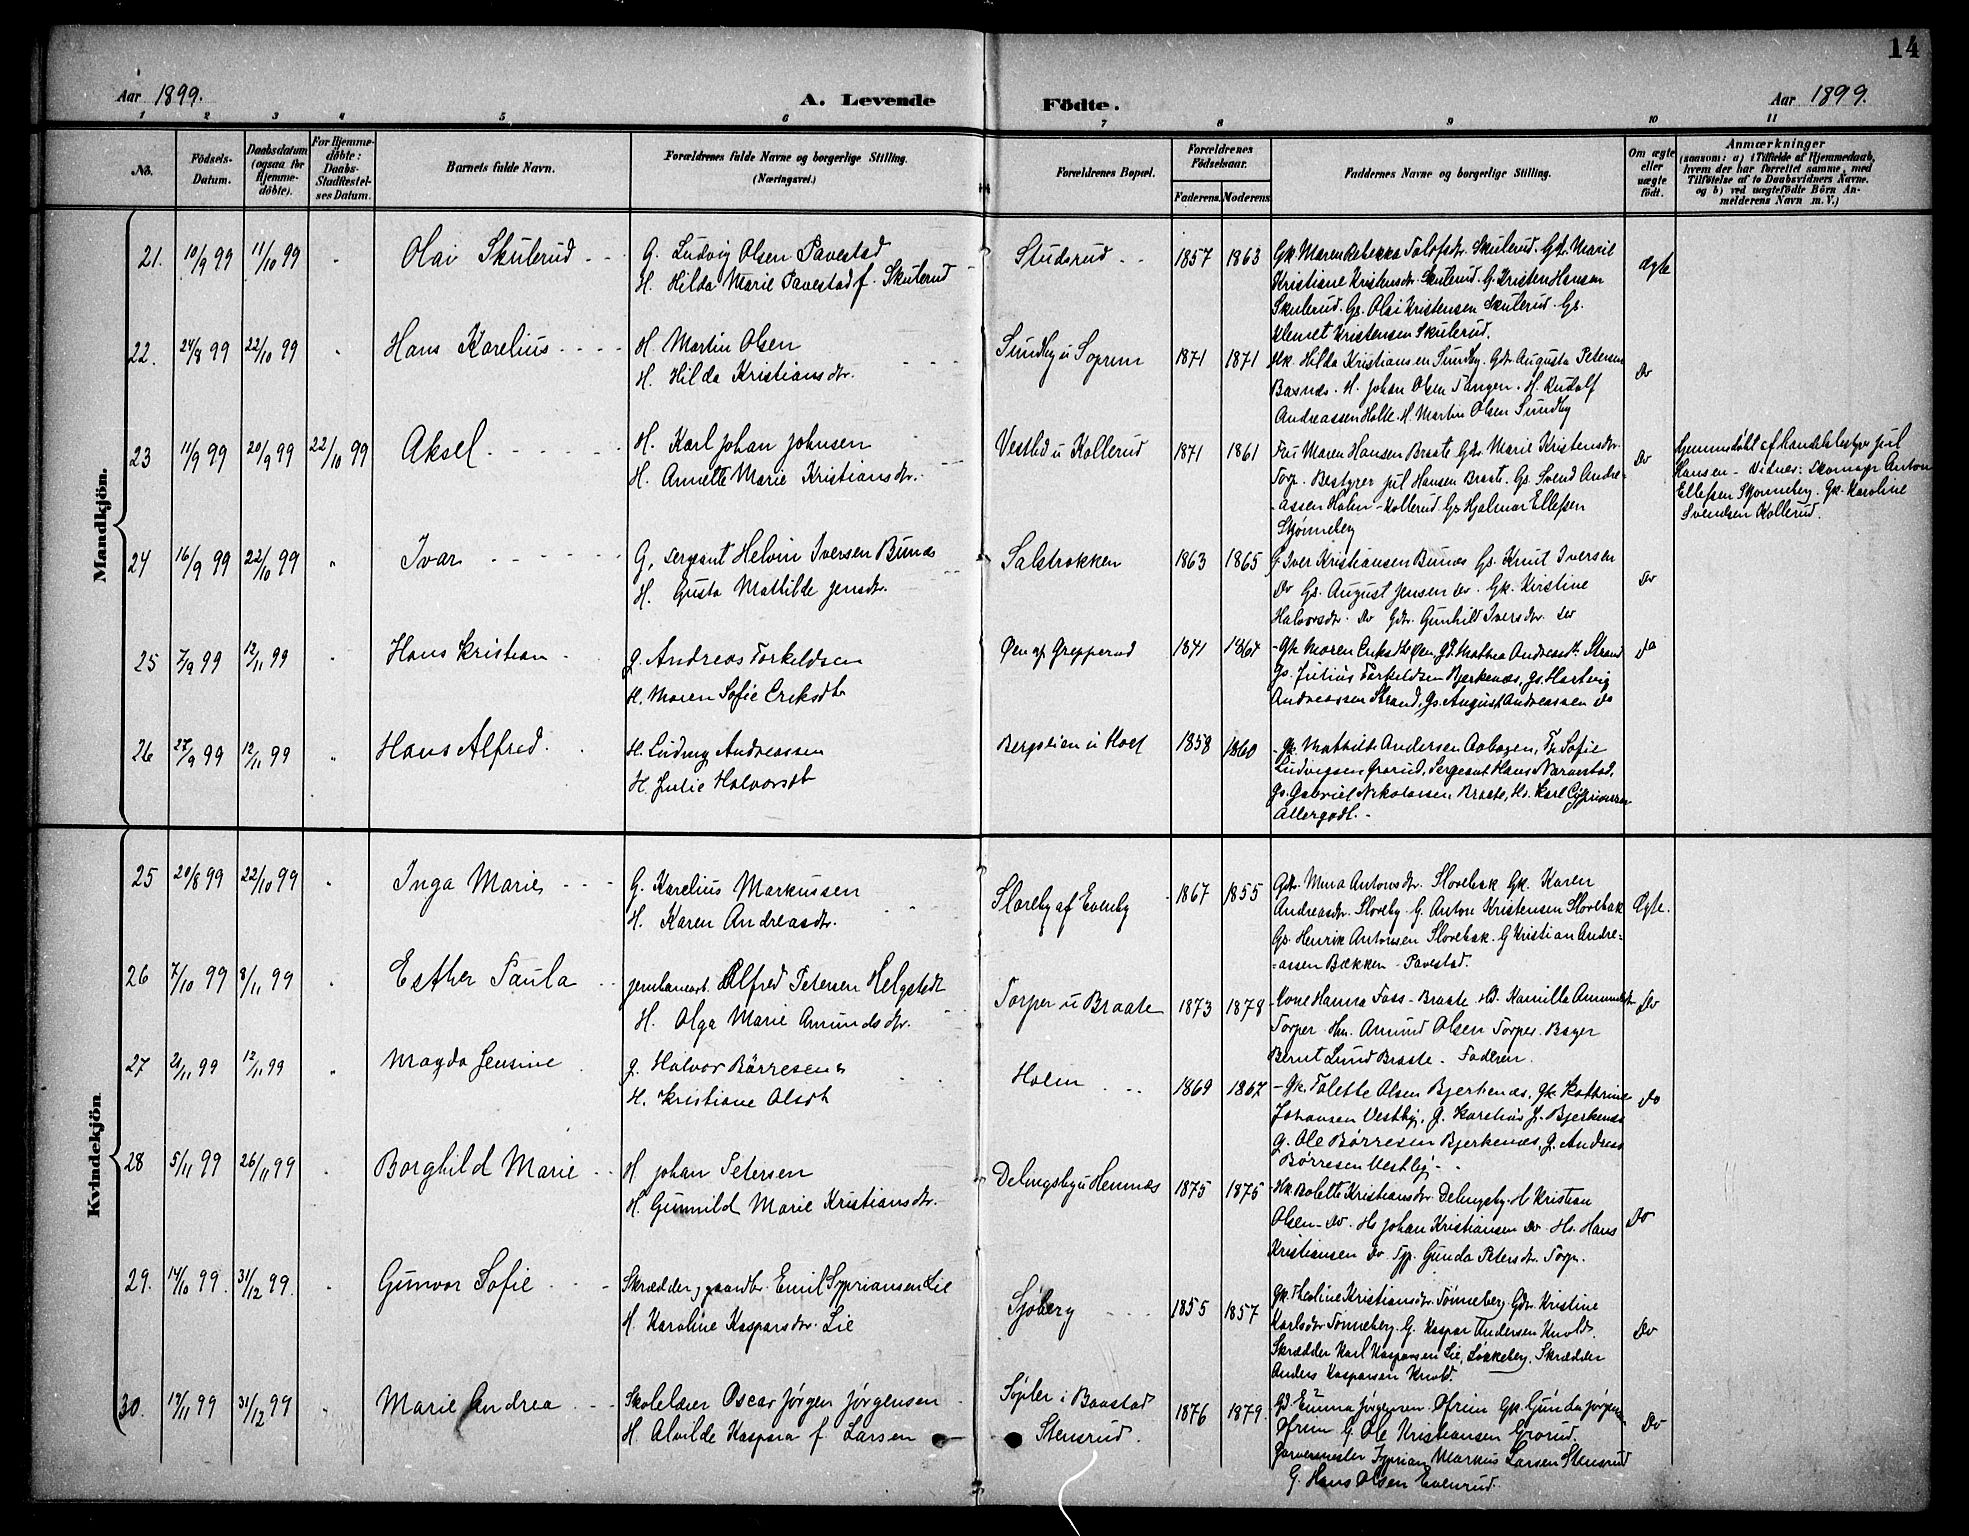 14
Aar 1899.
A. Levende Födte.
Aar 1899.
1 2 3 4 5 6 7 8 9 10 11
No.
Födsels-Datum.
Daabsdatum (ogsaa for Hjemmedöbte).
For Hjemmedöbte: Daabs-Stadfæstelses Datum.
Barnets fulde Navn.
Forældrenes fulde Navne og borgerlige Stilling.
(Næringsvei.)
Forældrenes Bopæl.
Forældrenes Födselsaar.
Faderens. Moderens.
Faddernes Navne og borgerlige Stilling.
Om ægte eller uægte födt.
Anmærkninger
(saasom: a) i Tilfælde af Hjemmedaab, hvem der har forrettet samme, med Tilföielse af to Daabsvidners Navne. og b) ved uægtefödte Börn Anmelderens Navn m. V.)
Mandkjön.
21. 10/9 99 11/10 99 " Olai Skulerud G. Ludvig Olsen Pavestad
H. Hilda Marie Pavestad f. Skulerud
Studsrud 1857 1863
Gk. Maren Rebekka Tolofsdtr. Skulerud. Gdr. Marie
Kristiane Kristensdtr. Skulerud. G. Kristen Hansen
Skulerud. Gs. Olai Kristensen Skulerud. Gs.
Klemet Kristensen Skulerud.
Ægte
22. 24/8 99 22/10 99 " Hans Karelius H. Martin Olsen
H. Hilda Kristiansdtr.
Sundby u Soprim 1871 1871
Hk. Hilda Kristiansen Sundby. Gdr. Augusta Petersen
Basnæs. H. Johan Olsen Tangen. H. Rudolf
Andreassen Holle. H. Martin Olsen Sundby
Do
23 11/9 99 20/9 99 22/10 99 Aksel H. Karl Johan Johnsen
H. Annette Marie Kristiansdtr.
Vestlid u Kollerud 1871 1861
Fru Maren Hansen Braate. Gdr. Marie Kristensdtr.
Torp. Bestyrer Jul Hansen Braate. Gs. Svend Andre-
assen Holm - Kollerud. Gs Hjalmar Ellefsen
Skjønneby
Do
Hjemmedöbt af handelsbestyr Jul
Hansen - Vidner: Skomagr Anton
Ellefsen Skjonneby. Gk. Karoline
Svendsen Kollerud.
24 16/9 99 22/10 99 " Ivar G. sergeant Helvin Iversen Bunæs
H. Gusta Mattilde Jensdtr.
Salstrokken 1863 1865
G. Iver Kristiansen Bunæs Gs. Knut Iversen
Do Gs. August Jensen do. Gk. Kirstine
Halvorsdtr. Do Gdr. Gunhild Iversdtr. do
Do
25 7/9 99 12/11 99 " Hans Kristian G. Andreas Torkeldsen
H. Maren Sofie Eriksdt
Øen af Grepperud 1841 1867
Gk Maren Øen, Andreasdt. Strand
Gs. Julius Torkeldsen Bjerkenæs, Gs. Hartvig
Andreassen Strand, Gs. August Andreassen Do
Do
26 27/9 99 12/11 99 " Hans Alfred. H. Ludvig Andreassen
H. Julie Halvorsdt
Bergslien u Hoel 1858 1860
Gk. Mathilde Andersen Aabogen, Tp. Sofie
Ludvigsen Grorud, Sergeant Hans Narvestad,
Gs. Gabriel Nikolaisen, Braate, Hs. Karl Cypriansen
Allergodt.
Kvindekjön
25 20/8 99 22/10 99 " Inga Marie G. Karelius Markussen
H. Karen Andreasdtr.
Sloreby af Evenby 1867 1855
Gdr. Mina Antonsdtr. Slorebak Gk. Karen
Andreasdtr. Sloreby. G. Anton Kristensen Slorebak
Gs. Henrik Antonsen Slorebak. G Kristian Andre-
assen Bækken - Pavestad.
Ægte.
26 7/10 99 8/11 99 " Esther Paula Jernbanearb. Alfred Petersen Helgstedt
H. Olga Marie Amundsdtr.
Torper u Braate 1873 1878
Kone Hanna Foss - Braate Hd. Kamilla Amundsdtr
Torper Hm. Amund Olsen Torper. Bager
Bernt Lund Braate. Faderen.
Do
27 12/11 99 " Magda Jensine G. Halvor Børresen
H. Kristiane Olsdt
Holen 1869 1867
Gk. Tolette Olsen Bjerkenæs, Gk. Kathrine
Johansen Vestby, G. Karelius J. Bjerkenæs
G. Ole Børresen Bjerkenæs, G. Andreas
Børresen Vestby
Do
28 5/11 99 26/11 99 " Borghild Marie H Johan Petersen
H. Gunnild Marie Kristiansdtr.
Delingsby u Hemnæs 1875 1875
Hk Bolette Kristiansdtr Delingsby. H Kristian
Olsen - Do. Hs Johan Kristiansen Do Hs. Hans
Kristiansen Do Tp. Gunda Petersdtr. Torp.
Do
29. 14/10 99. 31/12 99. Gunvor Sofie Skrædder, gaardbr. Emil Sypriansen Lie
H. Karoline Kaspersdtr. Lie
Sjoberg 1855 1857
Gk. Theoline Kristiansdtr Tonneberg. Gdr. Kristine
Karlsdtr Tonneberg. G. Kasper Andersen Knold.
Skrædder Karl Kaspersen Lie, Løkkeberg. Skrædder
Anders Kaspersen Knold.
Do
30. 19/11 99 31/12 99 Marie Andrea Skolelærer Oscar Jørgen Jørgensen
H. Alvilde Kaspara f. Larsen
Søpler i Baastad
Stensrud.
1876 1879.
Gd. Emma Jørgensen Ofrim Gk. Gunda Jørgensen
Ofrim G. Ole Kristiansen Grorud.
Garvermester Syprian Markus Larsen Stensrud
G. Hans Olsen Evenrud.
Do